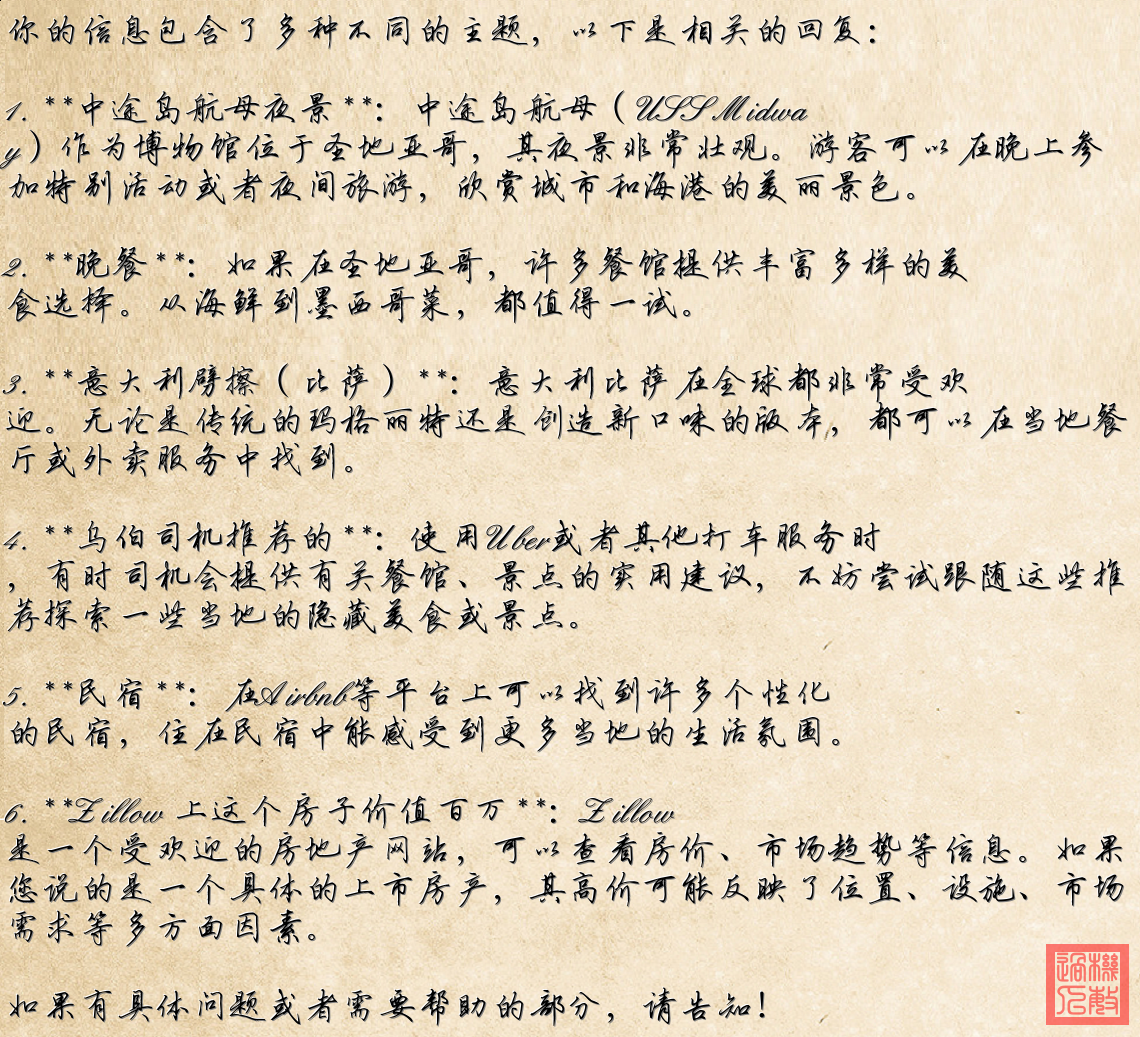 你的信息包含了多种不同的主题，以下是相关的回复：
1. **中途岛航母夜景**：中途岛航母（USS Midwa
y）作为博物馆位于圣地亚哥，其夜景非常壮观。游客可以在晚上参
加特别活动或者夜间旅游，欣赏城市和海港的美丽景色。
2. **晚餐**：如果在圣地亚哥，许多餐馆提供丰富多样的美
食选择。从海鲜到墨西哥菜，都值得一试。
3. **意大利劈擦（比萨）**：意大利比萨在全球都非常受欢
迎。无论是传统的玛格丽特还是创造新口味的版本，都可以在当地餐
厅或外卖服务中找到。
4. **乌伯司机推荐的**：使用Uber或者其他打车服务时
，有时司机会提供有关餐馆、景点的实用建议，不妨尝试跟随这些推
荐探索一些当地的隐藏美食或景点。
5. **民宿**：在Airbnb等平台上可以找到许多个性化
的民宿，住在民宿中能感受到更多当地的生活氛围。
6. **Zillow 上这个房子价值百万**：Zillow
是一个受欢迎的房地产网站，可以查看房价、市场趋势等信息。如果
您说的是一个具体的上市房产，其高价可能反映了位置、设施、市场
需求等多方面因素。
如果有具体问题或者需要帮助的部分，请告知！